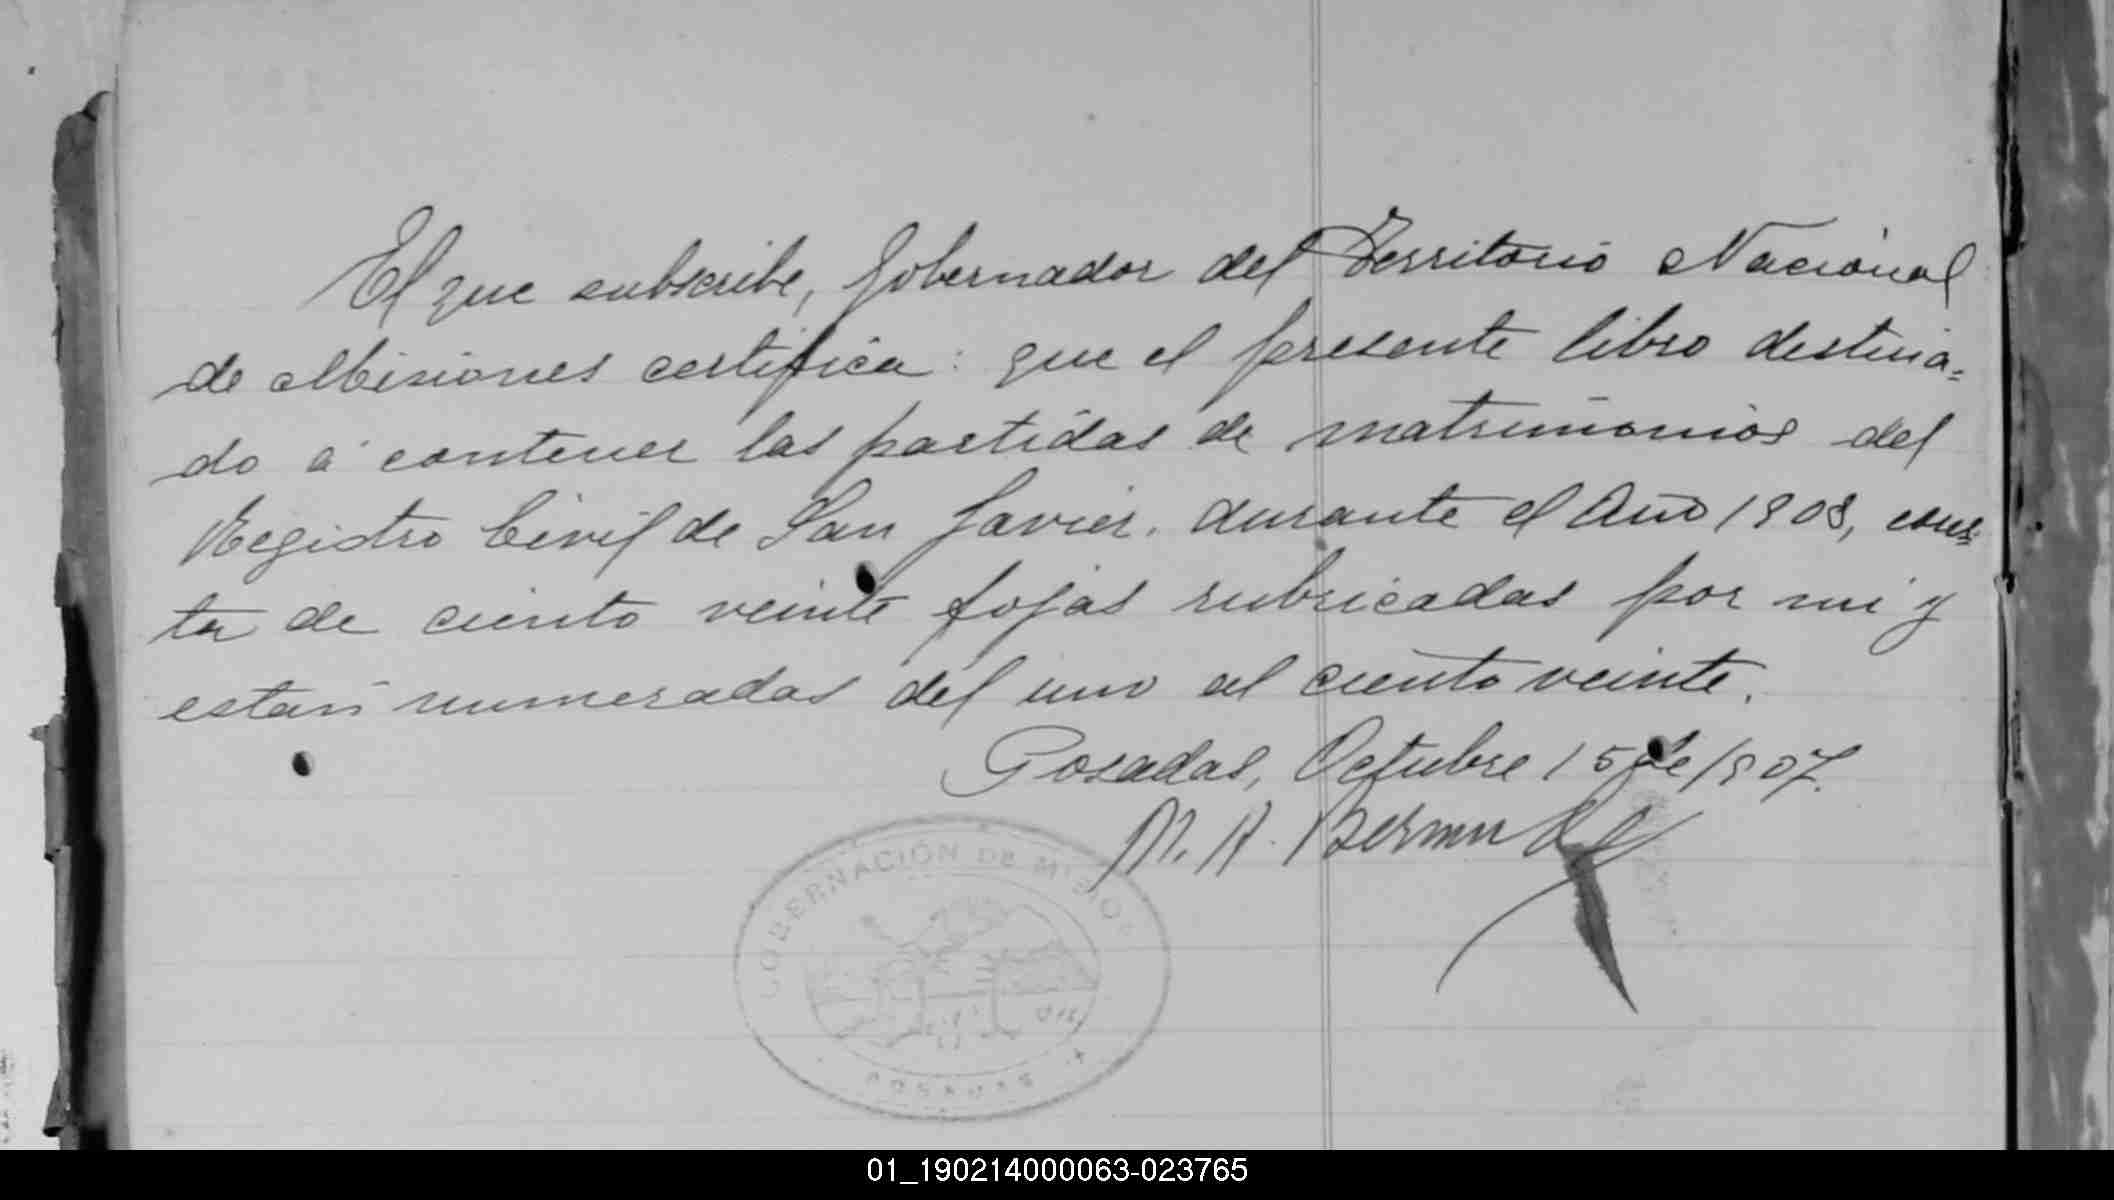 El que subscribe, Gobernador del Territorio Nacional
de Misiones certifica: que el presente libro destina=
do á contener las partidas de matrimonios del
Registro Civil de San Javier. durante el Año 1908, cons=
ta de ciento veinte fojas rubricadas por mi y
estan numeradas del uno al ciento veinte.
Posadas, Octubre 15 de 1907.
M. A. Bermudez
GOBERNACIÓN DE MISIONES
POSADAS
01_190214000063-023765